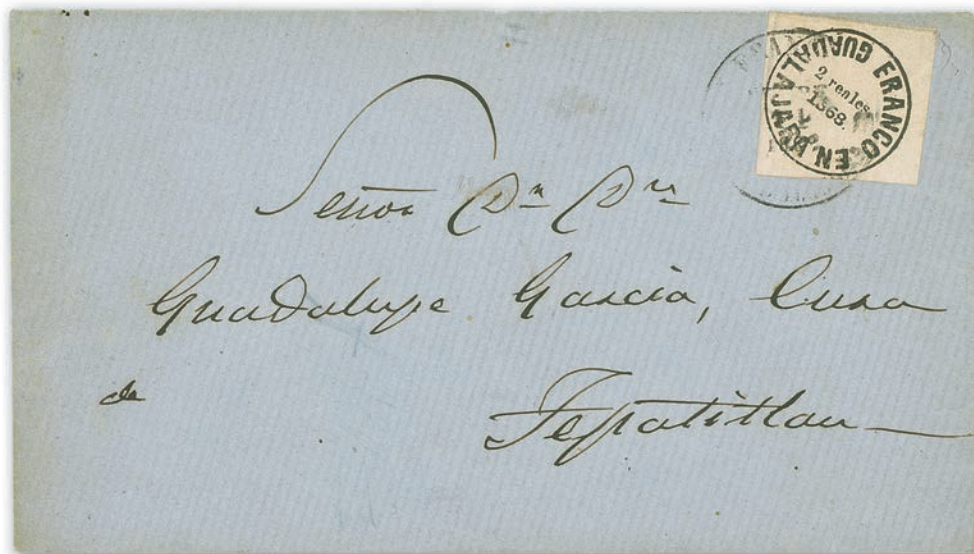 FRANCO EN GUADALAJARA
2 reales.
1868.
FRANCO
Señor Dn Dn
Guadalupe Garcia, Cura
de Tepatitlan